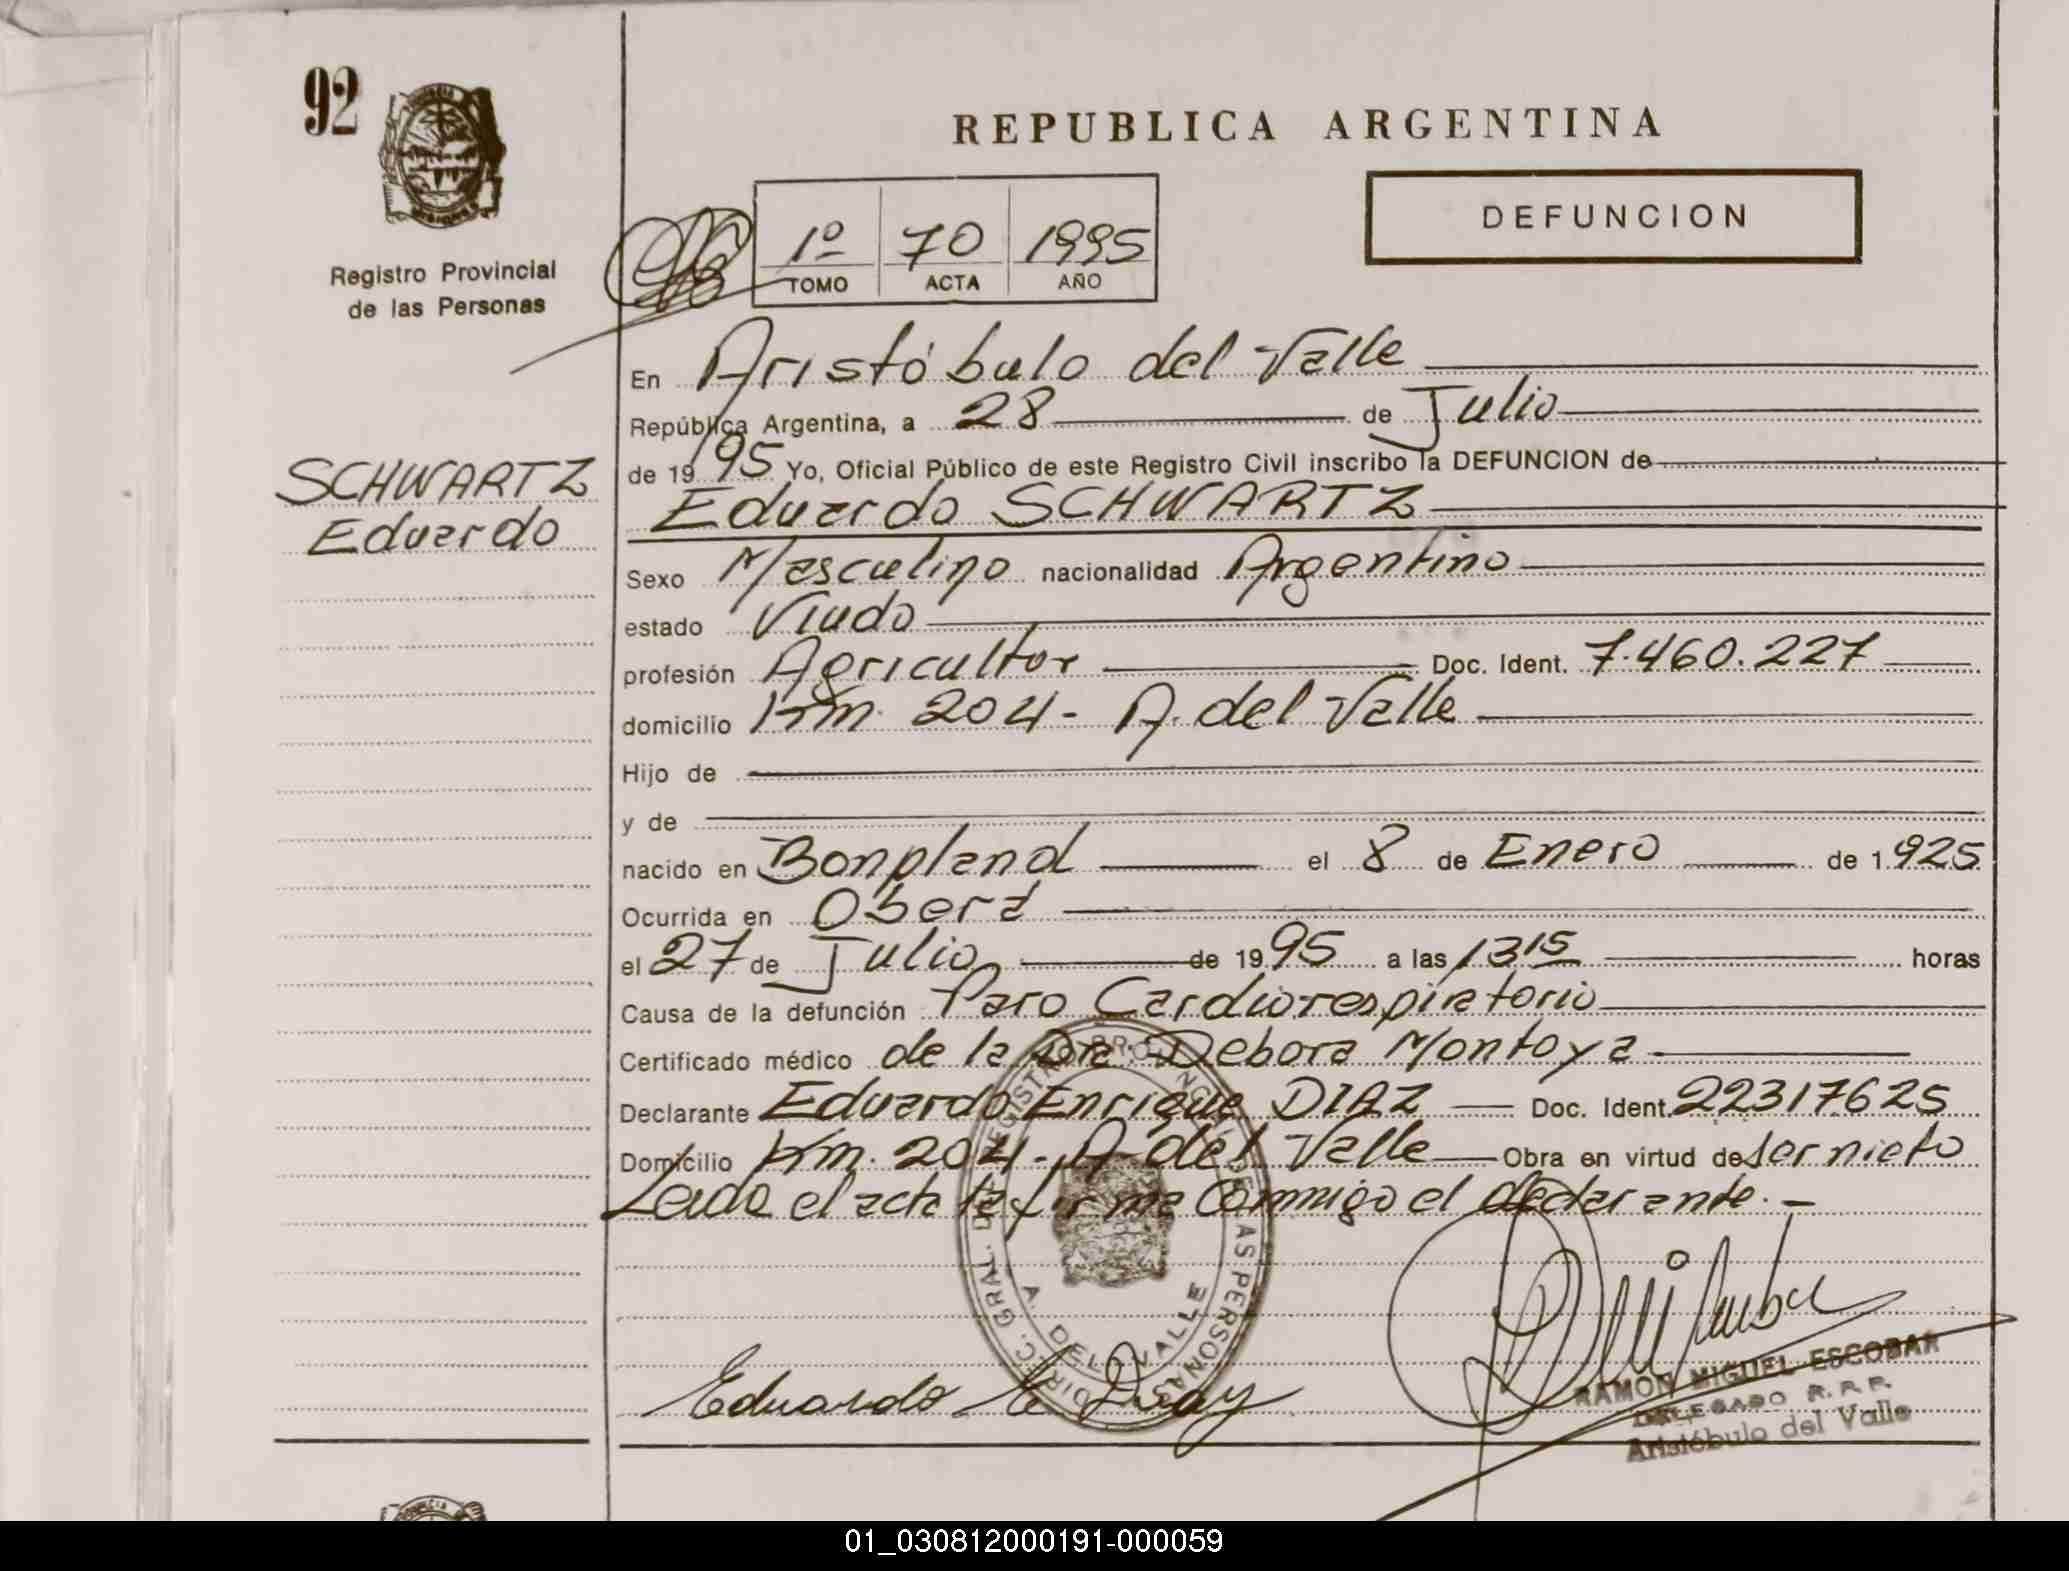 92
REPUBLICA ARGENTINA
DEFUNCION
1º 70 1995
TOMO ACTA AÑO
Registro Provincial
de las Personas
SCHWARTZ
Eduardo
En Aristóbulo del Valle
República Argentina, a 28 de Julio
de 1995 Yo, Oficial Público de este Registro Civil inscribo la DEFUNCION de
Eduardo SCHWARTZ
Sexo Masculino nacionalidad Argentino
estado Viudo
profesión Agricultor Doc. Ident. 7.460.227
domicilio Km. 204 - A. del Valle
Hijo de
y de
nacido en Bonpland el 8 de Enero de 1.925
Ocurrida en Oberá
el 27 de Julio de 1995 a las 13 15 horas
Causa de la defunción Paro Cardiorespiratorio
Certificado médico de la Dra. Debora Montoya
Declarante Eduardo Enrique DIAZ Doc. Ident. 22317625
Domicilio Km. 204 - A del Valle Obra en virtud de ser nieto
Leida el acta la firma Conmigo el declarante. -
DIREC. GRAL. DE REGISTRO PROVINCIAL DE LAS PERSONAS
A. DEL VALLE
Eduardo E Diaz
RAMON MIGUEL ESCOBAR
DELEGADO R.P.P.
Aristóbulo del Valle
01_030812000191-000059